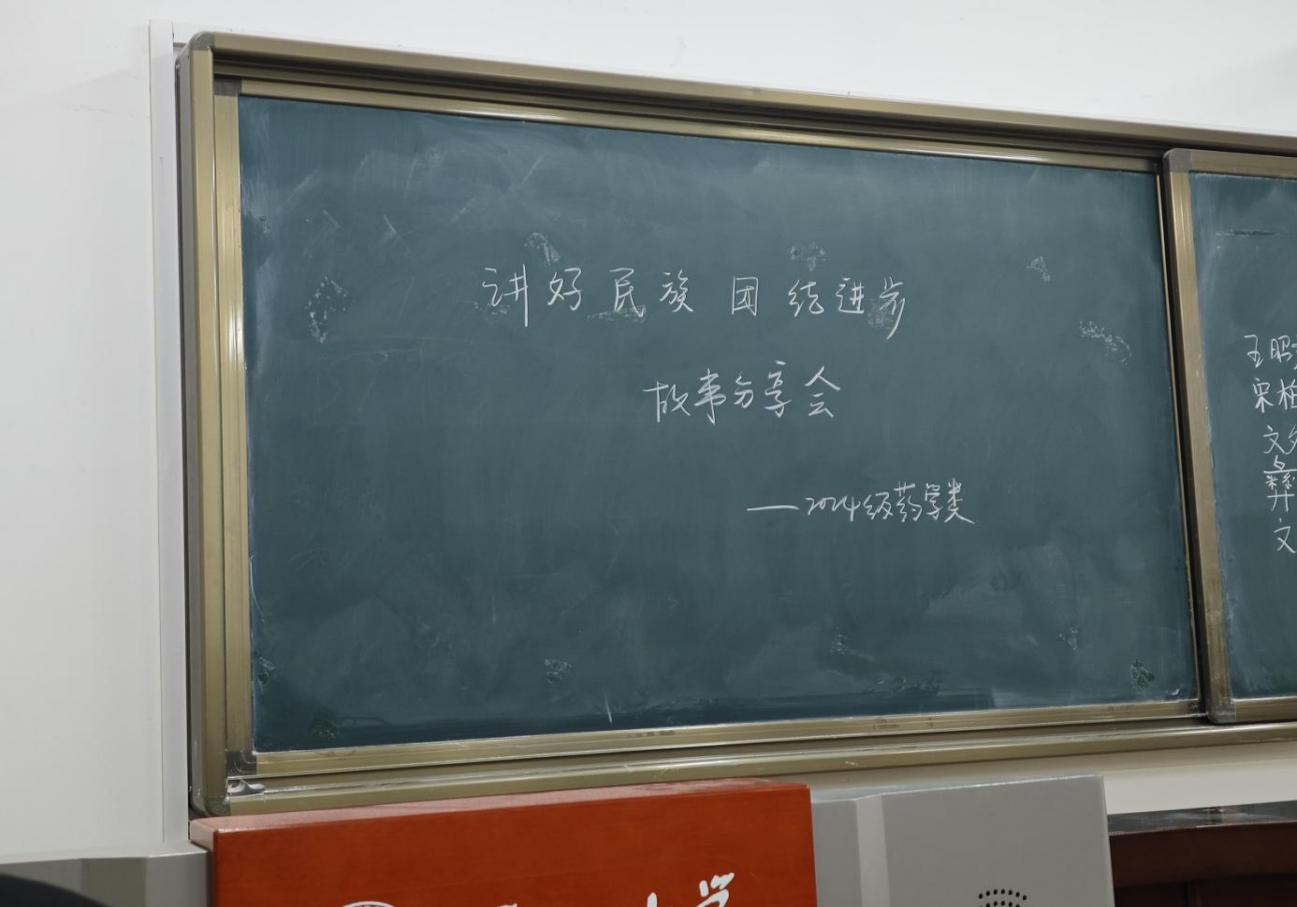 讲好民族团结进步
故事分享会
—2024级药学类
王昭
宋梅
文
彝
文
大学